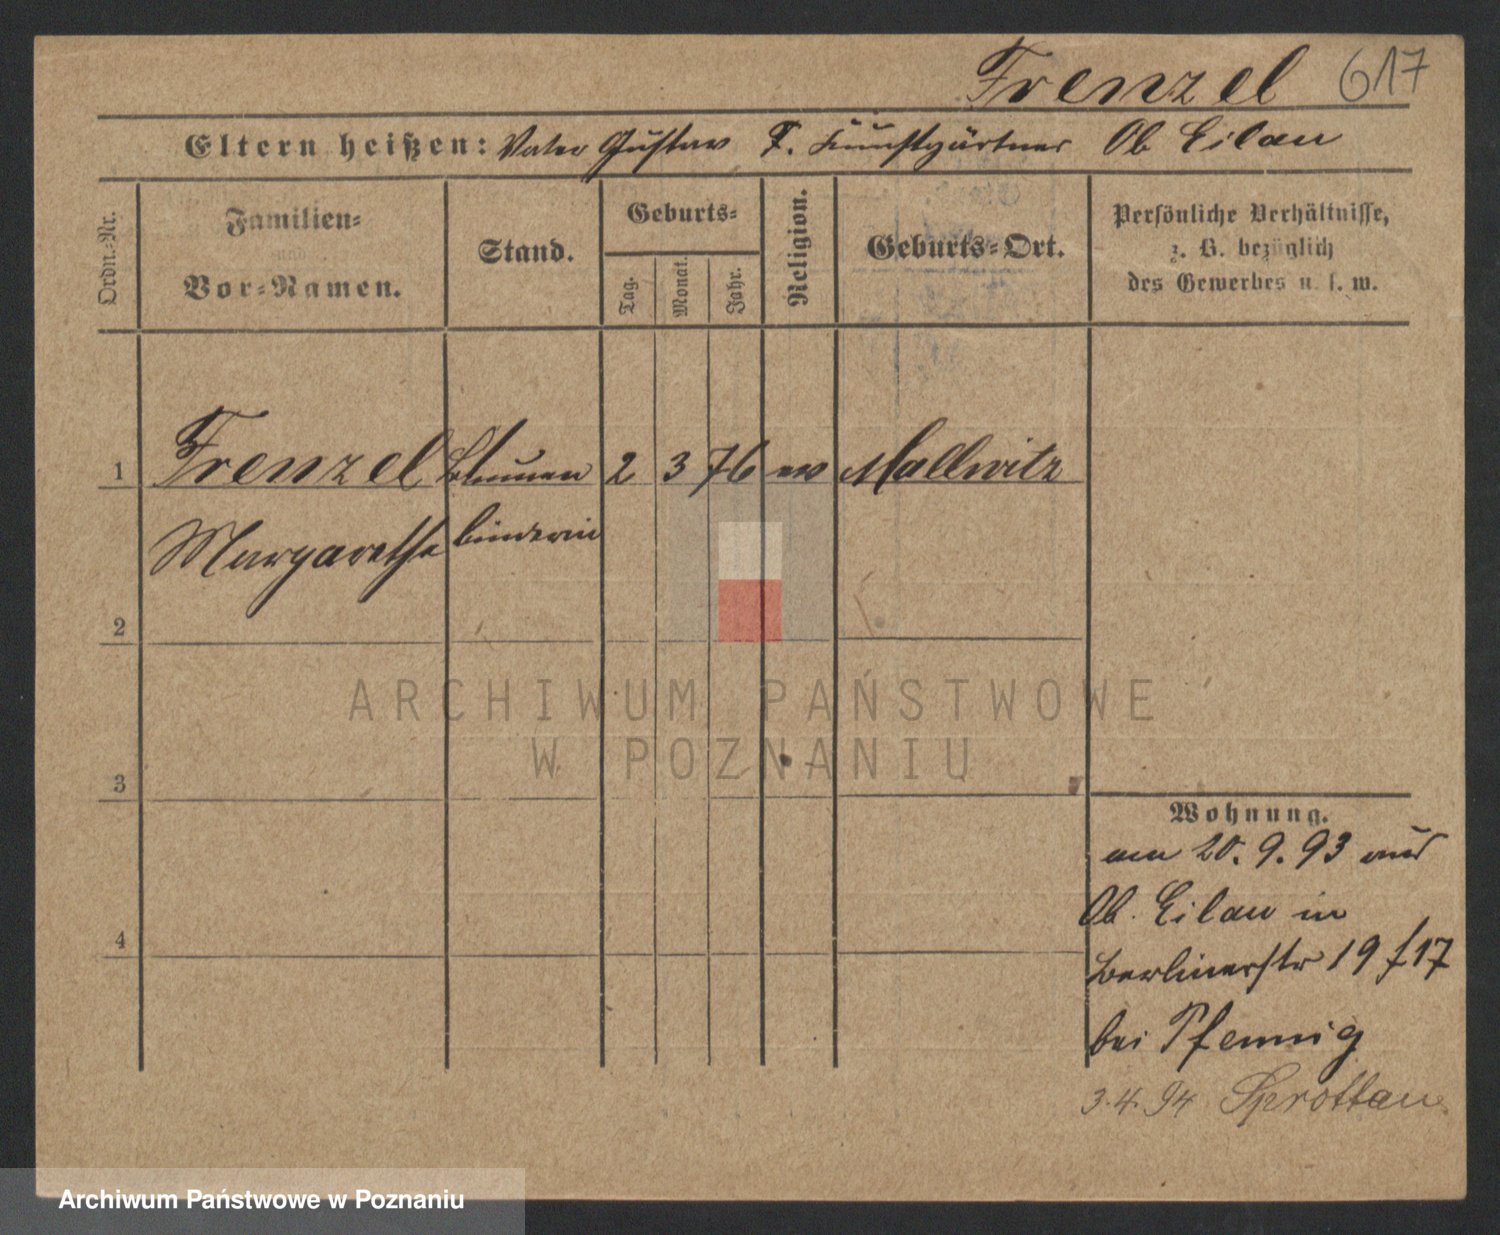 Frenzel 617
Eltern heißen: Vater Gustav F. Kunstgärtner Ob Eilau
Ordn.-Nr.
Familien-
und
Vor-Namen.
Stand.
Geburts-
Tag.
Monat.
Jahr.
Religion.
Geburts-Ort.
Persönliche Verhältnisse,
z. B. bezüglich
des Gewerbes u. s. w.
1 Frenzel Blumen 2 3 76 ev Mallwitz
Margarethe binderin
2
3
4
ARCHIWUM PAŃSTWOWE
W POZNANIU
Wohnung.
am 20. 9. 93 aus
Ob. Eilau in
Berlinerstr 19 f 17
bei Pfennig
3.4.94 Sprottau
Archiwum Państwowe w Poznaniu